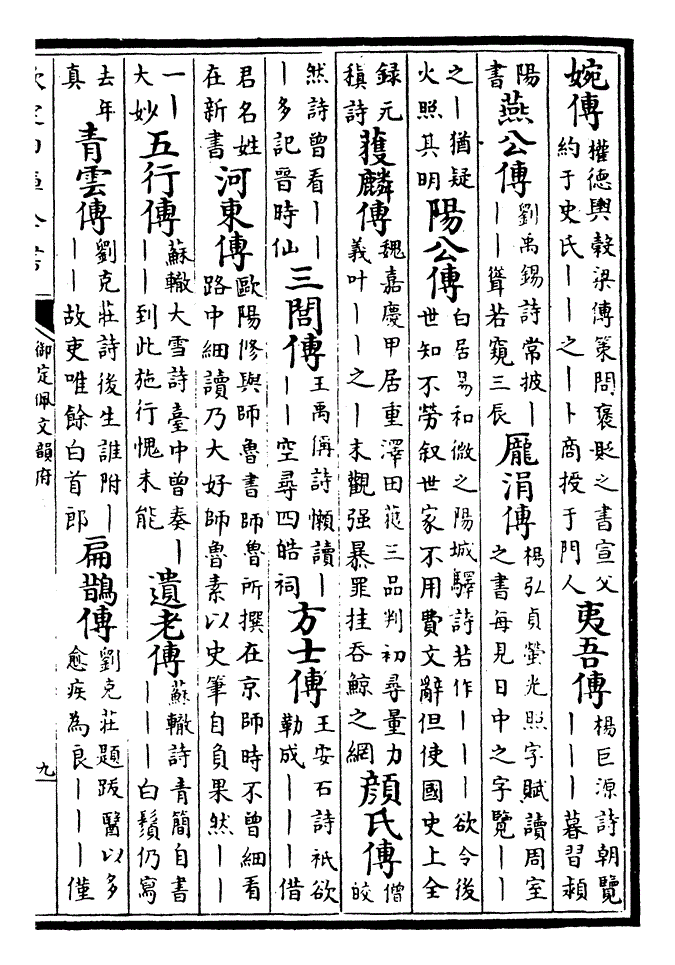 婉傳 權德輿穀梁傳策問褒貶之書宣父約于史氏丨丨之丨卜商授于門人 夷吾傳 楊巨源詩朝覽丨丨丨暮習潁
陽書 燕公傳 劉禹錫詩常披丨丨丨聳若窺三辰 龎涓傳 楊弘貞螢光照字賦讀周室之書每見日中之字覽丨丨
之丨猶疑火照其明 陽公傳 白居易和微之陽城驛詩若作丨丨丨欲令後世知不勞叙世家不用費文辭但使國史上全
録元稹詩 獲麟傳 魏嘉慶甲居重澤田菰三品判初尋量力義叶丨丨之丨末觀强暴罪挂吞鯨之網 顔氏傳 僧皎
然詩曾看丨丨丨多記晉時仙 三閭傳 王禹偁詩懶讀丨丨丨空尋四皓祠 方士傳 王安石詩祇欲勒成丨丨丨借
君名姓在新書 河東傳 歐陽修與師魯書師魯所撰在京師時不曾細看路中細讀乃大好師魯素以史筆自負果然丨丨
一丨大妙 五行傳 蘇轍大雪詩臺中曾奏丨丨丨到此施行愧未能 遺老傳 蘇轍詩青簡自書丨丨丨白鬚仍寫
去年真 青雲傳 劉克莊詩後生誰附丨丨丨故吏唯餘白首郎 扁鵲傳 劉克莊題跋醫以多愈疾為良丨丨丨僅
御定佩文韻府
九